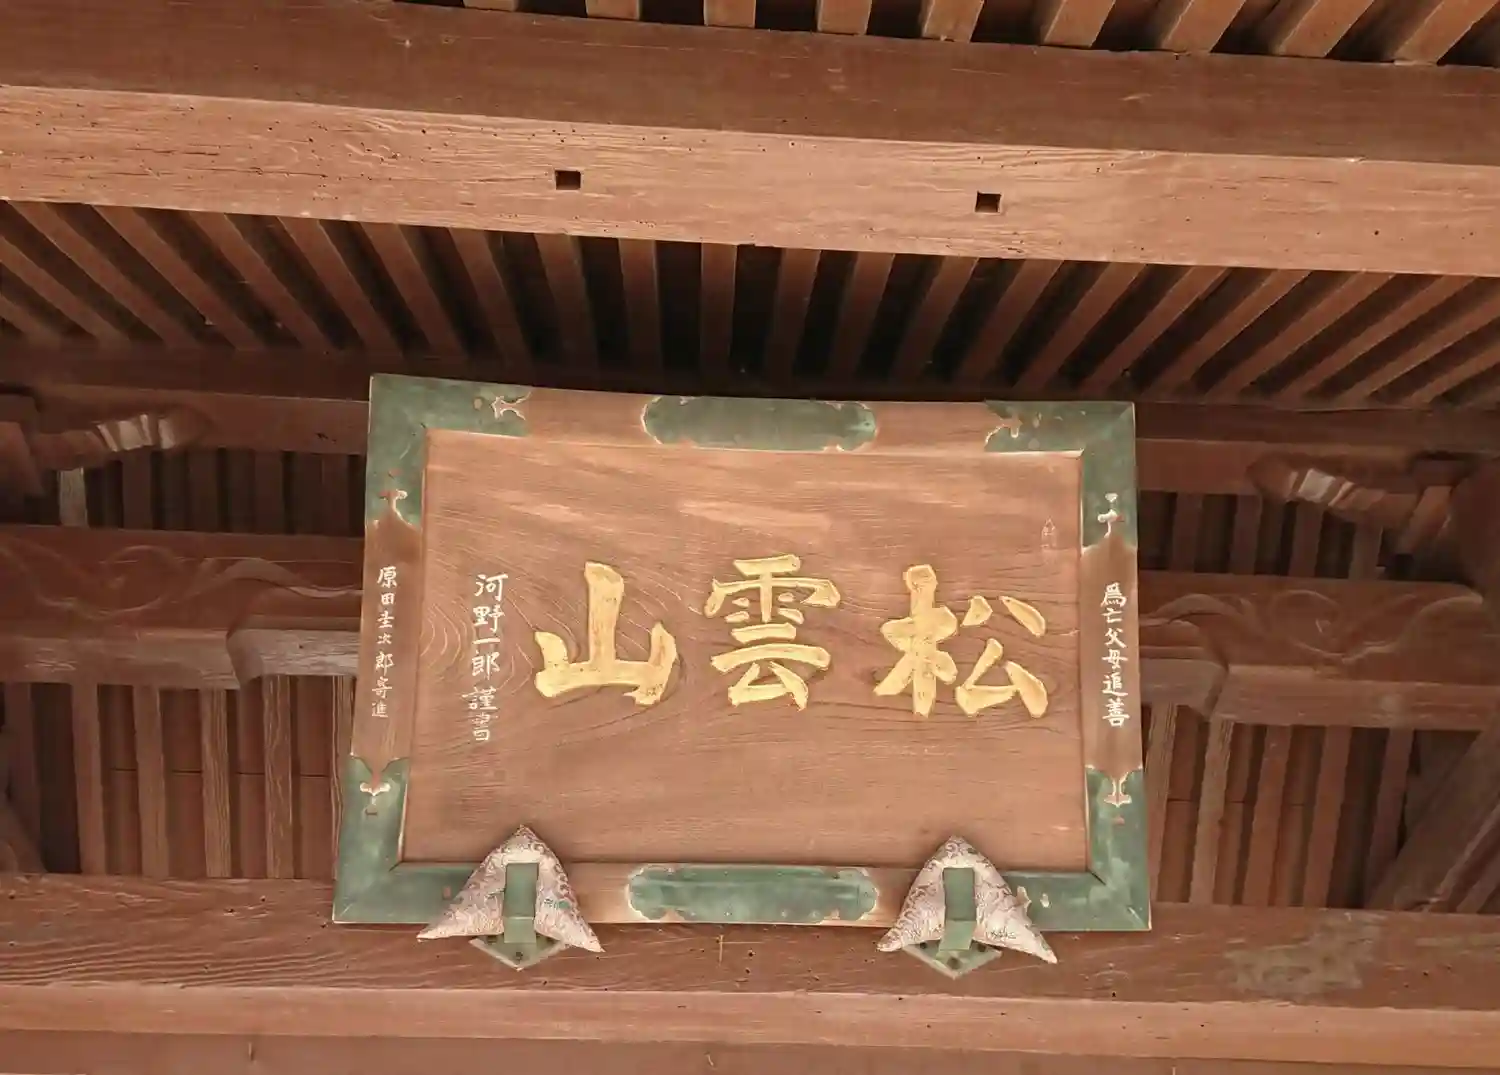 爲亡父母追善
松雲山
河野一郎謹書
原田圭次郎寄進